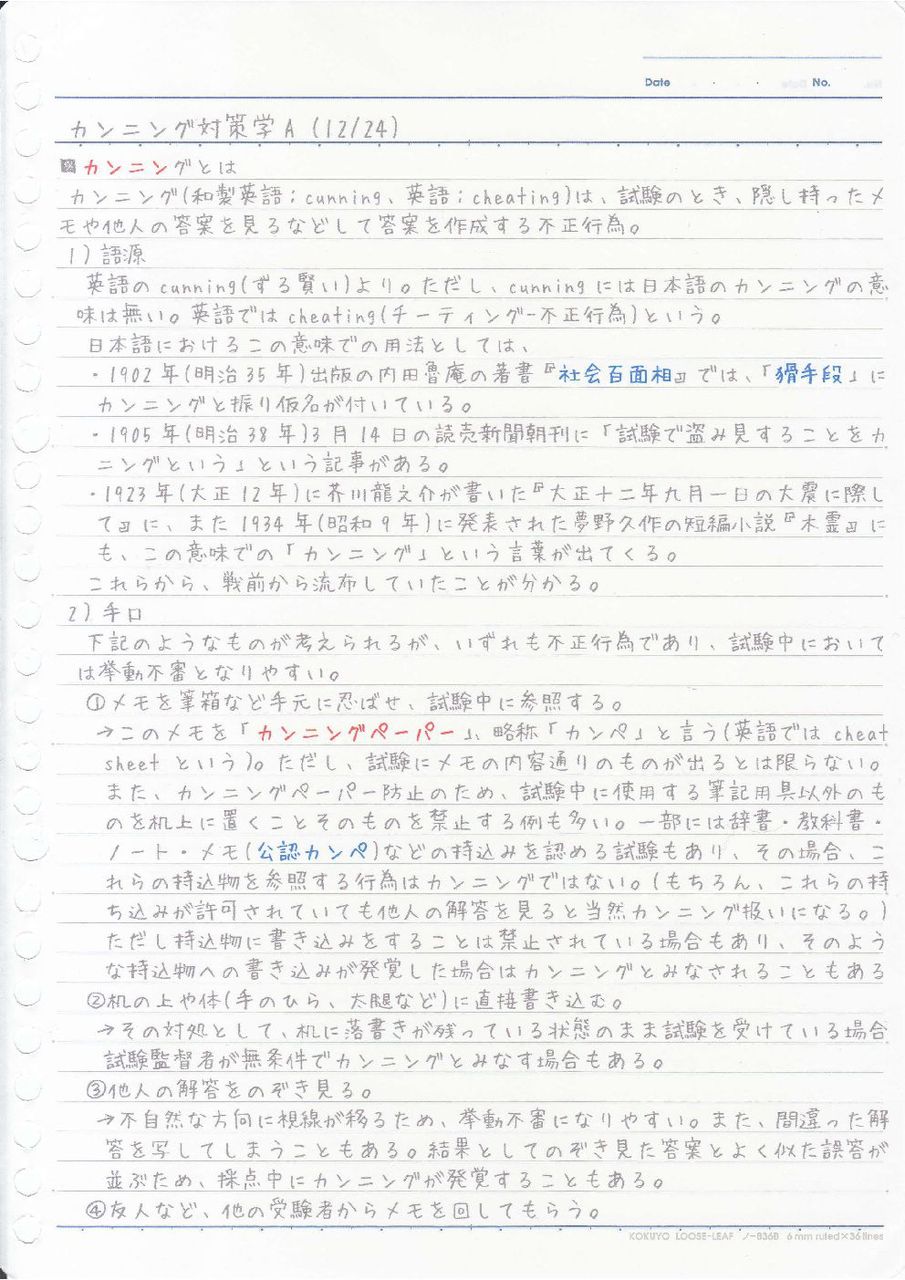 Date ・ ・ No.
カンニング対策学A (12/24)
※ カンニングとは
カンニング(和製英語;cunning、英語;cheating)は、試験のとき、隠し持ったメ
モや他人の答案を見るなどして答案を作成する不正行為。
1)語源
英語のcunning(ずる賢い)より。ただし、cunningには日本語のカンニングの意
味は無い。英語ではcheating(チーティング-不正行為)という。
日本語におけるこの意味での用法としては、
・1902年(明治35年)出版の内田魯庵の著書『社会百面相』では、「猾手段」に
カンニングと振り仮名が付いている。
・1905年(明治38年)3月14日の読売新聞朝刊に「試験で盗み見することをカ
ニングという」という記事がある。
・1923年(大正12年)に芥川龍之介が書いた『大正十二年九月一日の大震に際し
て』に、また1934年(昭和9年)に発表された夢野久作の短編小説『木霊』に
も、この意味での「カンニング」という言葉が出てくる。
これらから、戦前から流布していたことが分かる。
2)手口
下記のようなものが考えられるが、いずれも不正行為であり、試験中において
は挙動不審となりやすい。
①メモを筆箱など手元に忍ばせ、試験中に参照する。
→このメモを「カンニングペーパー」、略称「カンペ」と言う(英語ではcheat
sheetという)。ただし、試験にメモの内容通りのものが出るとは限らない。
また、カンニングペーパー防止のため、試験中に使用する筆記用具以外のも
のを机上に置くことそのものを禁止する例も多い。一部には辞書・教科書・
ノート・メモ(公認カンペ)などの持込みを認める試験もあり、その場合、こ
れらの持込物を参照する行為はカンニングではない。(もちろん、これらの持
ち込みが許可されていても他人の解答を見ると当然カンニング扱いになる。)
ただし持込物に書き込みをすることは禁止されている場合もあり、そのよう
な持込物への書き込みが発覚した場合はカンニングとみなされることもある
②机の上や体(手のひら、太腿など)に直接書き込む。
→その対処として、机に落書きが残っている状態のまま試験を受けている場合
試験監督者が無条件でカンニングとみなす場合もある。
③他人の解答をのぞき見る。
→不自然な方向に視線が移るため、挙動不審になりやすい。また、間違った解
答を写してしまうこともある。結果としてのぞき見た答案とよく似た誤答が
並ぶため、採点中にカンニングが発覚することもある。
④友人など、他の受験者からメモを回してもらう。
KOKUYO LOOSE-LEAF ノ-836B 6 mm ruled×36 lines